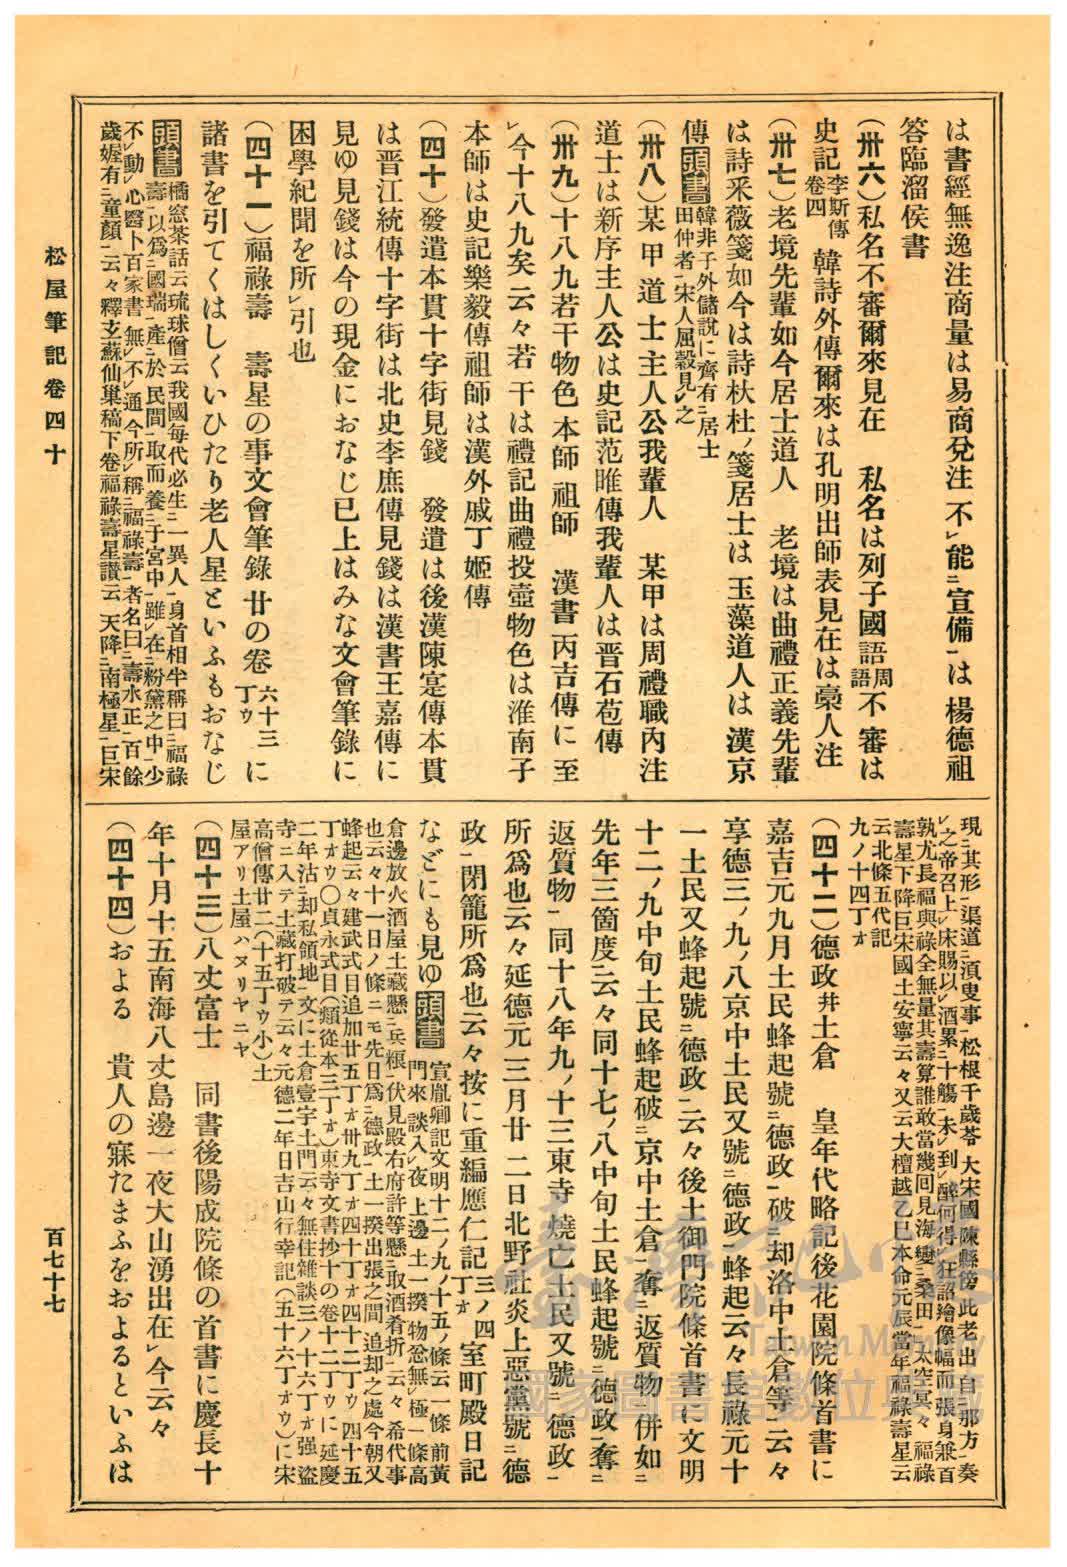 は書經無逸注商量は易商兌注不㆑能㆓宣備㆒は楊德祖
答臨溜侯書
(卅六)私名不審爾來見在　私名は列子國語周語不審は
史記李斯傳卷四　韓詩外傳爾來は孔明出師表見在は稾人注
(卅七)老境先輩如今居士道人　老境は曲禮正義先輩
は詩采薇箋如今は詩杕杜ノ箋居士は玉藻道人は漢京
傳頭書韓非子外儲說に齊有㆓居士
田仲者㆒宋人屈穀見㆑之
(卅八)某甲道士主人公我輩人　某甲は周禮職內注
道士は新序主人公は史記范睢傳我輩人は晋石苞傳
(卅九)十八九若干物色本師祖師　漢書丙吉傳に至
㆑今十八九矣云々若干は禮記曲禮投壺物色は淮南子
本師は史記樂毅傳祖師は漢外戚丁姬傳
(四十)發遣本貫十字街見錢　發遣は後漢陳寔傳本貫
は晋江統傳十字街は北史李庶傳見錢は漢書王嘉傳に
見ゆ見錢は今の現金におなじ已上はみな文會筆錄に
困學紀聞を所㆑引也
(四十一)福祿壽　壽星の事文會筆錄廿の卷六十三丁ウに
諸書を引てくはしくいひたり老人星といふもおなじ
頭書橘窓茶話云琉球僧云我國每代必生㆓一異人㆒身首相半稱曰㆓福祿
壽㆒以爲㆓國瑞㆒產㆓於民間㆒取而養㆓于宮中㆒雖㆑在㆓粉黛之中㆒少
不㆑動㆑心醫卜百家書無㆑不㆑通今所㆑稱㆓福祿壽㆒者名曰㆓壽水正㆒百餘
歲媉有㆓童顏㆒云々釋玄蘇仙巢稿下卷福祿壽星讃云　天降㆓南極星㆒巨宋
現㆓其形㆒渠道㆓須叟事㆒松根千歲苓大宋國陳縣傍此老出自㆓那方㆒奏
㆑之帝召上㆑床賜以㆑酒累㆓十觴㆒未㆑到㆑醉何得㆑狂詔繪像幅而張身兼百
孰尤長福與祿全無量其壽算誰敢當幾回見海變㆓桑田㆒太空冥々　福祿
壽星下降巨宋國土安寧云々又云大檀越乙巳本命元辰當年福祿壽星云
云北條五代記
九ノ十四丁オ
(四十二)德政并土倉　皇年代略記後花園院條首書に
嘉吉元九月土民蜂起號㆓德政㆒破㆓却洛中土倉等㆒云々
享德三ノ九ノ八京中土民又號㆓德政㆒蜂起云々長祿元十
一土民又蜂起號㆓德政㆒云々後土御門院條首書に文明
十二ノ九中旬土民蜂起破㆓京中土倉㆒奪㆓返質物㆒併如㆓
先年三箇度㆒云々同十七ノ八中旬土民蜂起號㆓德政㆒奪㆓
返質物㆒同十八年九ノ十三東寺燒亡土民又號㆓德政㆒
所爲也云々延德元三月廿二日北野社炎上惡黨號㆓德
政㆒閉籠所爲也云々按に重編應仁記三ノ四丁オ室町殿日記
などにも見ゆ頭書宣胤卿記文明十二ノ九ノ十五ノ條云一條前黃
門來談入㆑夜上邊土一揆物忩無㆑極一條高
倉邊放火酒屋土藏懸㆓兵粮㆒伏見殿右府許等懸㆓取酒肴折㆒云々希代事
也云々十一日ノ條ニモ先日爲㆓德政㆒土一揆出張之間追却之處今朝又
蜂起云々建武式目追加廿五丁オ卅九丁オ四十丁オ四十二丁ウ四十五
丁オウ〇貞永式目(類從本三丁オ)東寺文書抄十の卷十二丁ウに延慶
二年沽㆓却私領地㆒文に土倉壹宇土門云々無住雜談三ノ十六丁オ强盜
寺ニ入テ土藏打破テ云々元德二年日吉山行幸記(五十六丁オウ)に宋
高僧傳廿二(十五丁ウ小)土
屋アリ土屋ハヌリヤニヤ
(四十三)八丈富士　同書後陽成院條の首書に慶長十
年十月十五南海八丈島邊一夜大山湧出在㆑今云々
(四十四)およる　貴人の寐たまふをおよるといふは
松屋筆記卷四十
百七十七
臺灣記憶
Taiwan Memory
國家圖書館數位典藏